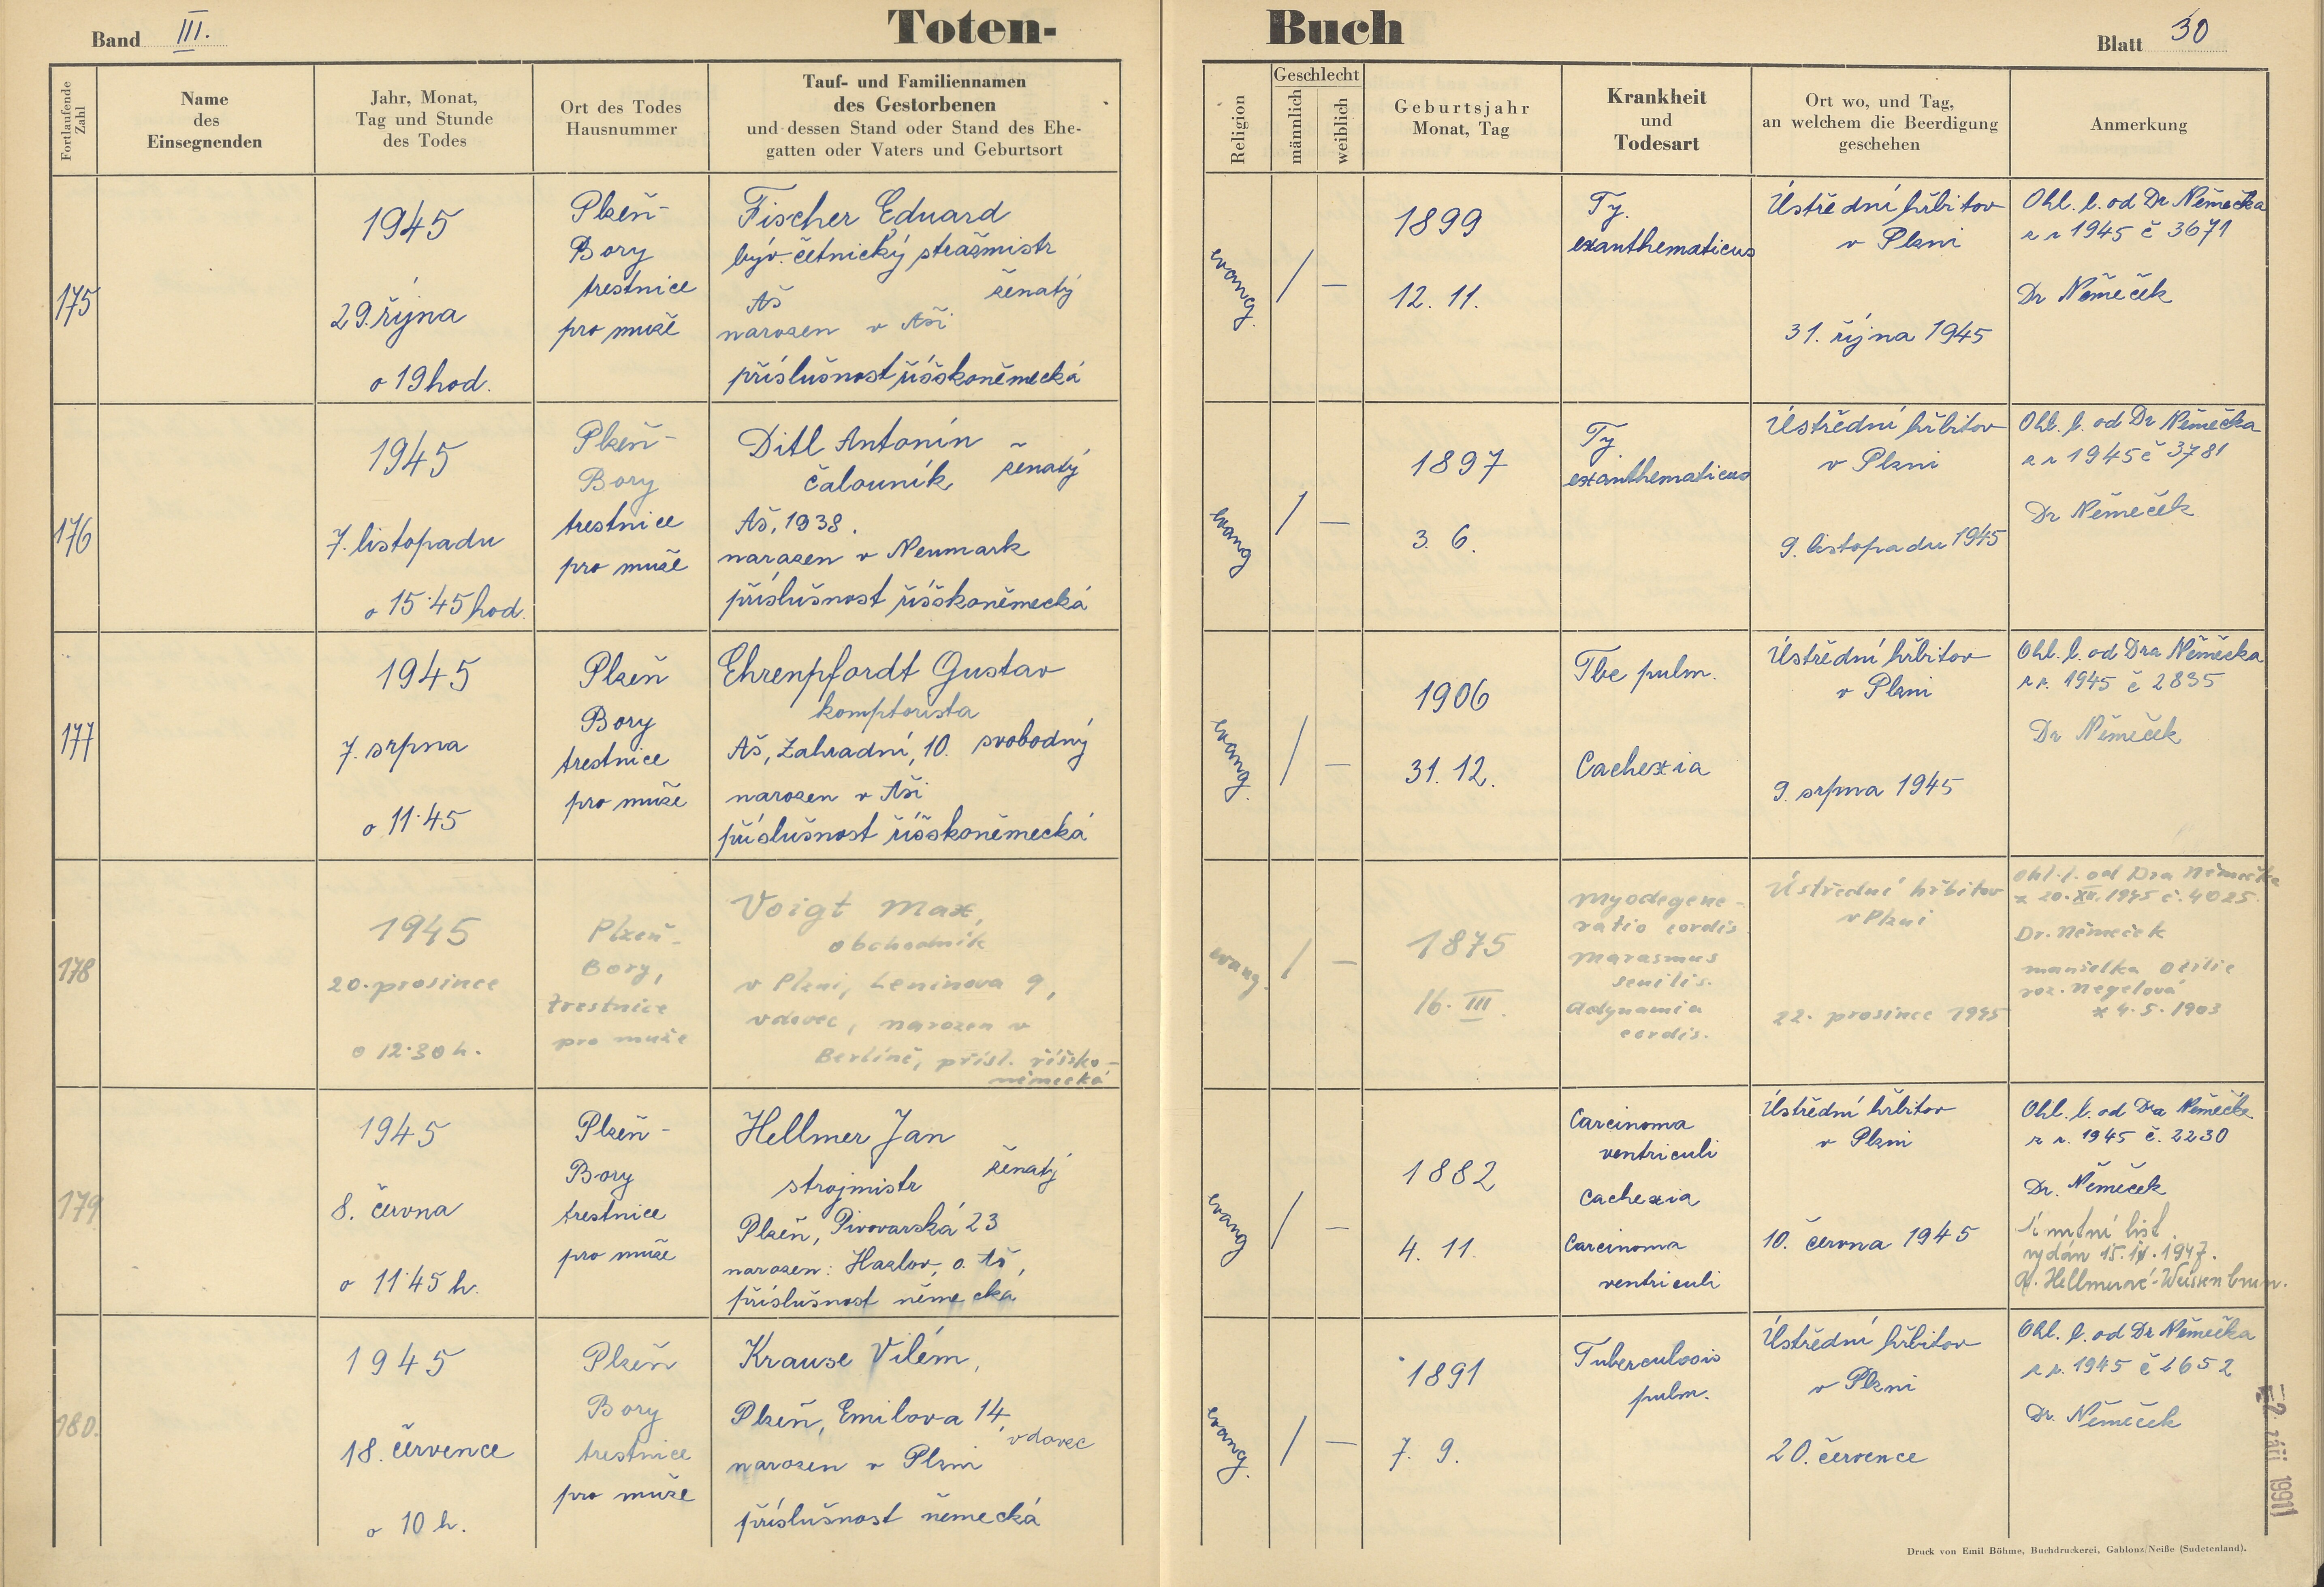 Band III.
Toten-
Buch
Blatt 30
Fortlaufende
Zahl
Name
des
Einsegnenden
Jahr, Monat,
Tag und Stunde
des Todes
Ort des Todes
Hausnummer
Tauf- und Familiennamen
des Gestorbenen
und dessen Stand oder Stand des Ehe-
gatten oder Vaters und Geburtsort
Religion
Geschlecht
männlich
weiblich
Geburtsjahr
Monat, Tag
Krankheit
und
Todesart
Ort wo, und Tag,
an welchem die Beerdigung
geschehen
Anmerkung
175
1945
29. října
o 19 hod.
Plzeň-
Bory
trestnice
pro muže
Fischer Eduard
býv. četnický strážmistr
Aš ženatý
narozen v Aši
příslušnost říšskoněmecká
evang.
/ —
1899
12. 11.
Ty.
exanthematicus
Ústřední hřbitov
v Plzni
31. října 1945
Ohl. l. od Dr Němečka
z r 1945 č 3671
Dr Němeček
176
1945
7. listopadu
o 15·45 hod.
Plzeň-
Bory
trestnice
pro muže
Ditl Antonín
čalouník ženatý
Aš, 1938.
narozen v Neumark
příslušnost říšskoněmecká
evang
/ —
1897
3. 6.
Ty
exanthematicus
Ústřední hřbitov
v Plzni
9. listopadu 1945
Ohl. l. od Dr Němečka
z r 1945 č 3781
Dr Němeček
177
1945
7. srpna
o 11·45
Plzeň
Bory
trestnice
pro muže
Ehrenpfordt Gustav
komptorista
Aš, Zahradní, 10. svobodný
narozen v Aši
příslušnost říšskoněmecká
evang.
/ —
1906
31. 12.
Tbc pulm.
Cachexia
Ústřední hřbitov
v Plzni
9. srpna 1945
Ohl. l. od Dra Němečka
z r. 1945 č 2835
Dr Němeček
178
1945
20. prosince
o 12·30 h.
Plzeň-
Bory,
trestnice
pro muže
Voigt Max,
obchodník
v Plzni, Leninova 9,
vdovec, narozen v
Berlíně, přísl. říšsko-
německá
evang.
/ —
1875
16. III.
Myodegene-
ratio cordis
Marasmus
senilis.
Adynamia
cordis.
Ústřední hřbitov
v Plzni
22. prosince 1945
Ohl. l. od Dra Němečka
z 20. XII. 1945 č. 4025.
Dr. Němeček
manželka Otilie
roz. Negelová
* 4. 5. 1903
179
1945
8. června
o 11·45 h.
Plzeň-
Bory
trestnice
pro muže
Hellmer Jan
strojmistr ženatý
Plzeň, Pivovarská 23
narozen: Hazlov, o. Aš,
příslušnost německá
evang
/ —
1882
4. 11.
Carcinoma
ventriculi
Cachexia
Carcinoma
ventriculi
Ústřední hřbitov
v Plzni
10. června 1945
Ohl. l. od Dra Němečka
z r. 1945 č. 2230
Dr. Němeček
Úmrtní list
vydán 15. IV. 1947.
Hellmerové-Weissenbrun.
180.
1945
18. července
o 10 h.
Plzeň
Bory
trestnice
pro muže
Krause Vilém,
Plzeň, Emilova 14,
vdovec
narozen v Plzni
příslušnost německá
evang.
/ —
1891
7. 9.
Tuberculosis
pulm.
Ústřední hřbitov
v Plzni
20. července
Ohl. l. od Dr Němečka
z r. 1945 č 2652
Dr. Němeček
září 1991
Druck von Emil Böhme, Buchdruckerei, Gablonz/Neiße (Sudetenland).